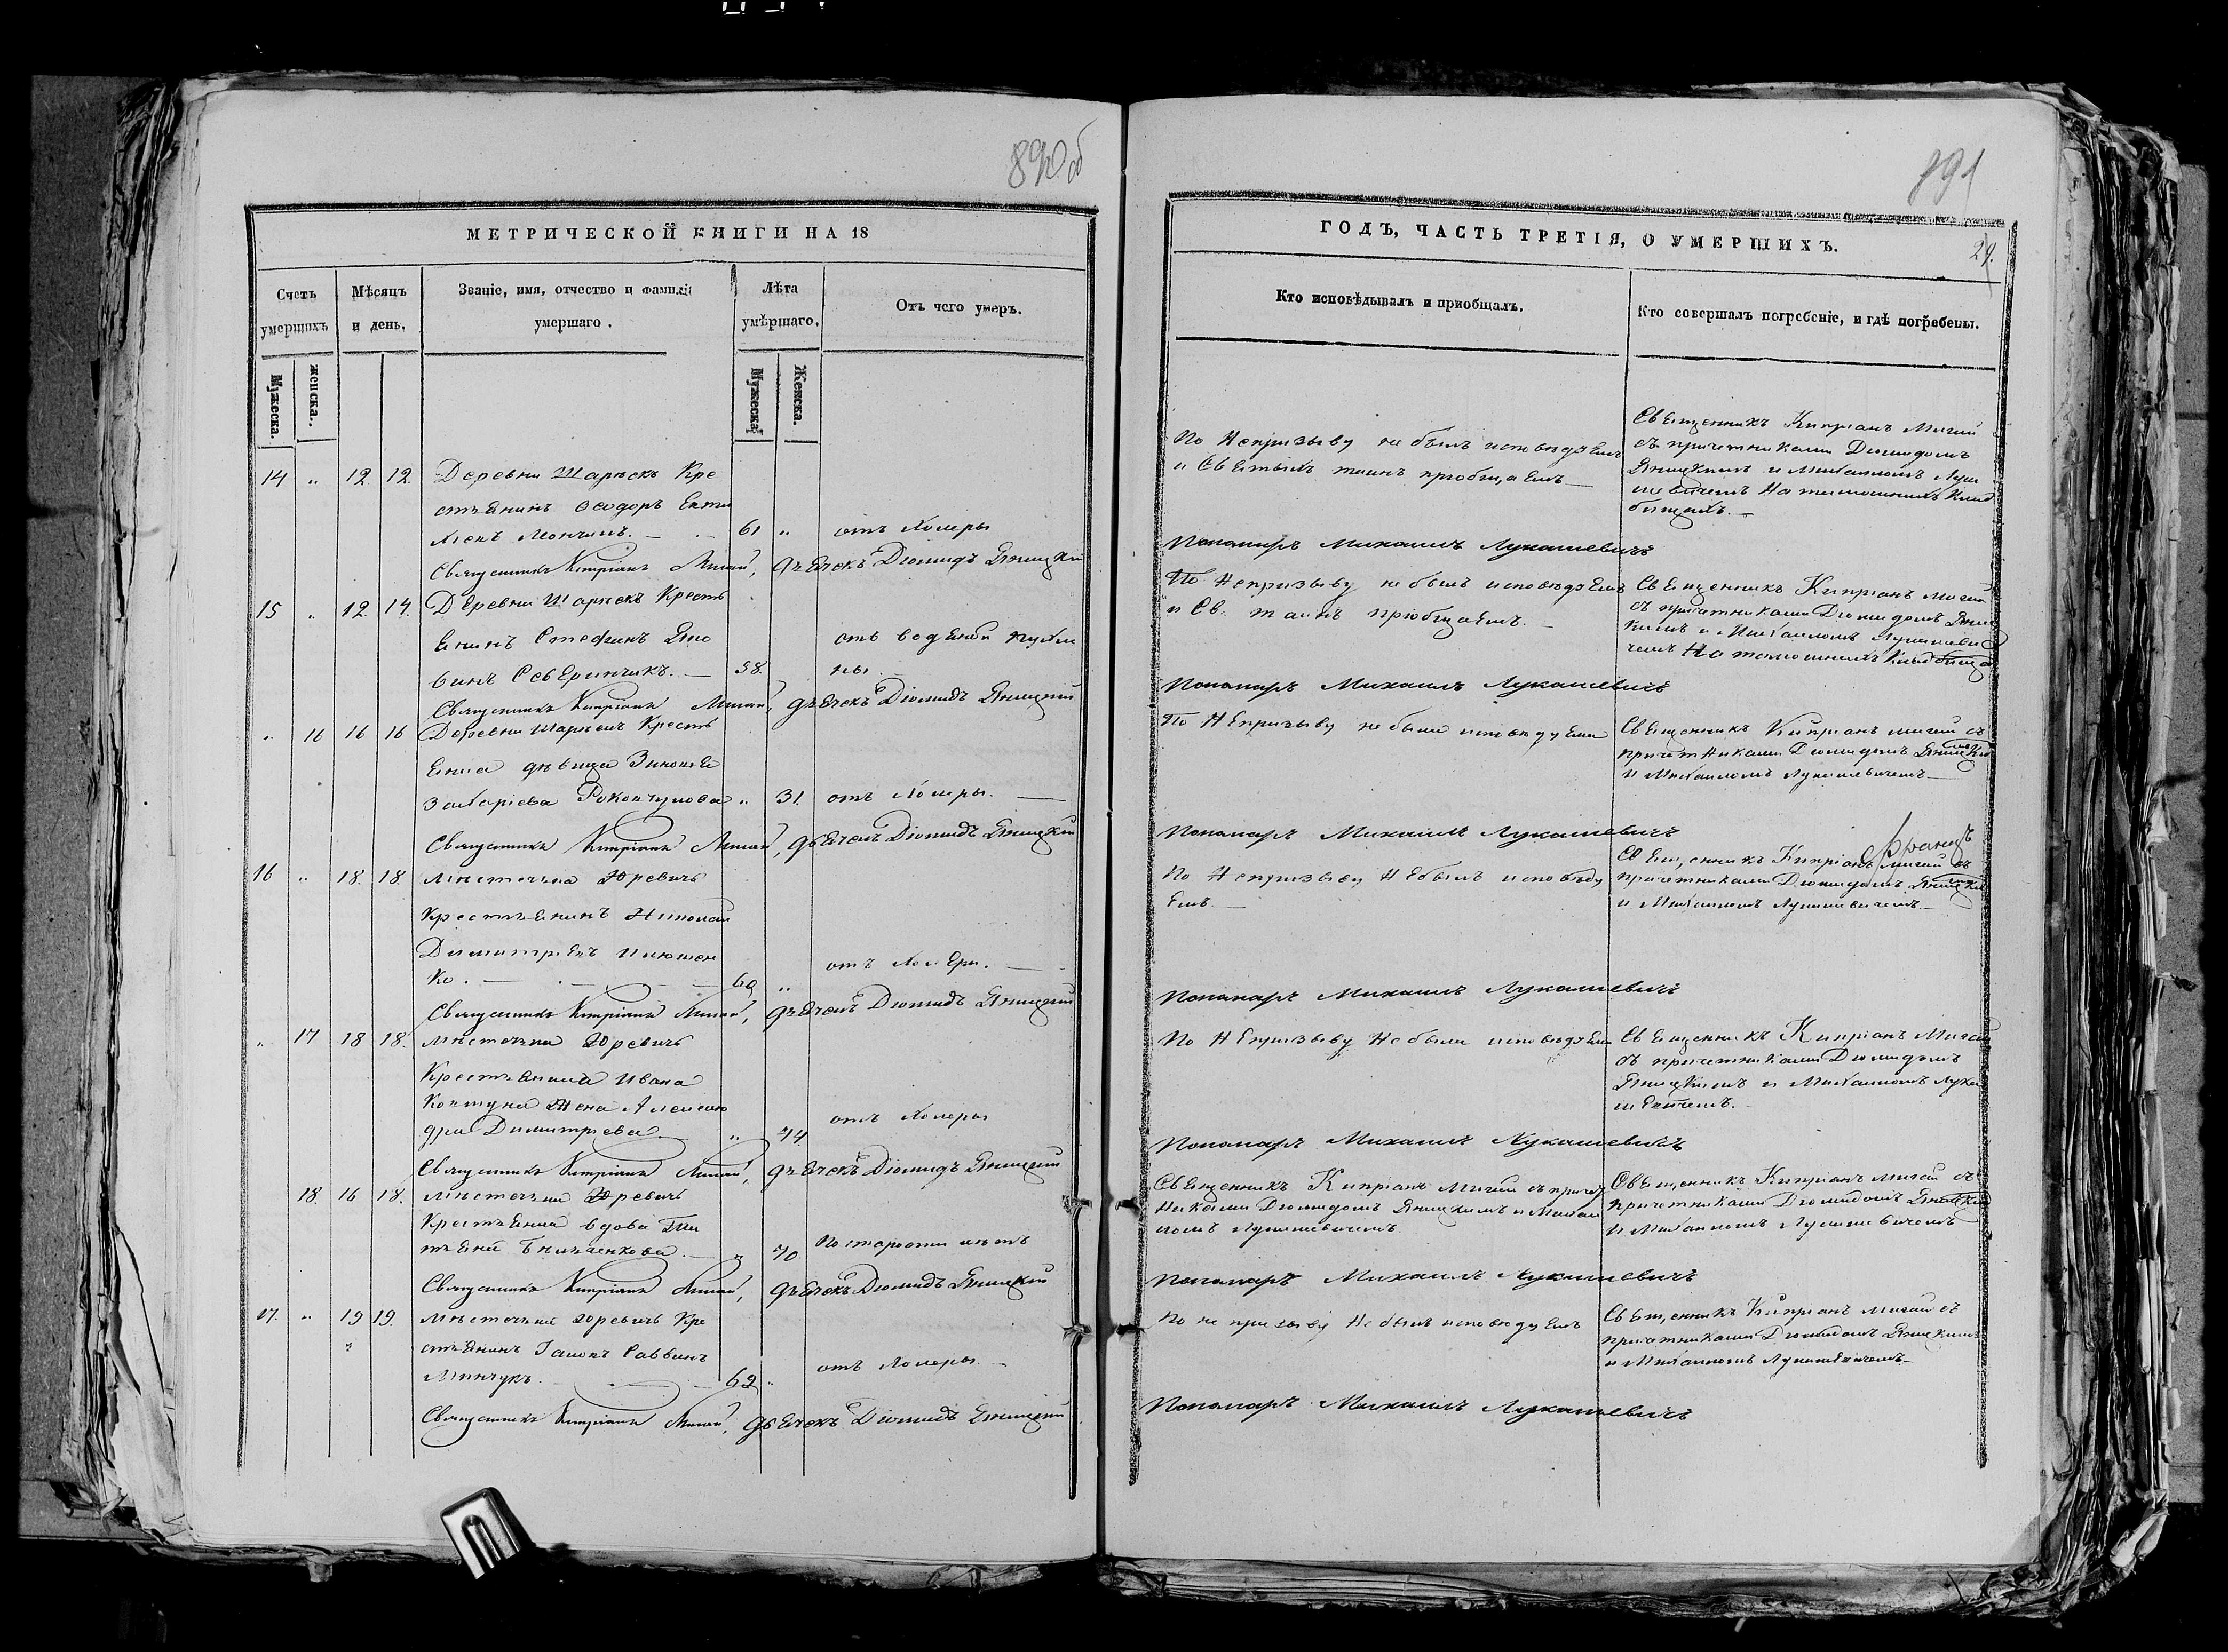 890 об
МЕТРИЧЕСКОЙ КНИГИ НА 18
Счетъ умершихъ
Мѣсяцъ и день.
Званіе, имя, отчество и фамилія умершаго.
Лѣта умѣршаго.
Отъ чего умеръ.
Мужеска.
женска.
Мужеска.
Женска.
14 " 12 12 Деревни Шарѣекъ Кре
стьянинъ Ѳеодоръ
61 " отъ Холеры
Священникъ Кипріанъ Мигай, дьячекъ Діомидъ Яницкій
15 " 12 14. Деревни Шарѣекъ Кресть
янинъ Стефанъ
отъ водяной пухли
винъ Северинчикъ. — 58. ны.
Священникъ Кипріанъ Мигай, дьячекъ Діомидъ Яницкій
" 16 16 16 Деревни Шарѣекъ Кресть
янка дѣвица
Захаріева " 31. отъ Холеры. —
Священникъ Кипріанъ Мигай, дьячекъ Діомидъ Яницкій
16 " 18. 18. Мѣстечка Юревичъ
Крестьянинъ Николай
Димитріевъ
ко. — 60 " отъ Холеры. —
Священникъ Кипріанъ Мигай, дьячекъ Діомидъ Яницкій
" 17 18 18. Мѣстечка Юревичъ
Крестьянина Ивана
Ковтуна жена Алексан
дра Димитріева " 74 отъ Холеры
Священникъ Кипріанъ Мигай, дьячекъ Діомидъ Яницкій
18. 16 18. Мѣстечка Юревичъ
Крестьянка вдова Та
тьяна " 70 По старости лѣтъ
Священникъ Кипріанъ Мигай, дьячекъ Діомидъ Яницкій
17. " 19 19. Мѣстечка Юревичъ Кре
стьянинъ Іаковъ Саввинъ
Минчукъ. — 62 " отъ Холеры —
Священникъ Кипріанъ Мигай, дьячекъ Діомидъ Яницкій
891
ГОДЪ, ЧАСТЬ ТРЕТІЯ, О УМЕРШИХЪ.
29.
Кто исповѣдывалъ и приобщалъ.
Кто совершалъ погребеніе, и гдѣ погребены.
По Непризыву не былъ исповѣдуемъ
и Святыхъ таинъ приобщаемъ —
Священникъ Кипріанъ Мигай
съ причетниками Діомидомъ
Яницкимъ и Михаиломъ Лука
шевичемъ На тамошнихъ Клад
бищахъ. —
Пономарь Михаилъ Лукашевичъ
По Непризыву не былъ исповѣдуемъ
и Св. таинъ приобщаемъ. —
Священникъ Кипріанъ Мигай
съ причетниками Діомидомъ Яниц
кимъ и Михаиломъ Лукашеви
чемъ На тамошнихъ Кладбищахъ
Пономарь Михаилъ Лукашевичъ
По Непризыву не была исповѣдуема
Священникъ Кипріанъ Мигай съ
причетниками Діомидомъ Яницкимъ
и Михаиломъ Лукашевичемъ —
Пономарь Михаилъ Лукашевичъ
По Непризыву Небылъ исповѣду
емъ. —
Священникъ Кипріанъ Мигай съ
причетниками Діомидомъ Яницкимъ
и Михаиломъ Лукашевичемъ. —
Пономарь Михаилъ Лукашевичъ
По Непризыву Небыла исповѣдуема
Священникъ Кипріанъ Мигай
съ причетниками Діомидомъ
Яницкимъ и Михаиломъ Лука
шевичемъ. —
Пономарь Михаилъ Лукашевичъ
Священникъ Кипріанъ Мигай съ причет
никами Діомидомъ Яницкимъ и Михаи
ломъ Лукашевичемъ
Священникъ Кипріанъ Мигай съ
причетниками Діомидомъ Яницкимъ
и Михаиломъ Лукашевичемъ
Пономарь Михаилъ Лукашевичъ
По не призыву Небылъ исповѣдуемъ
Священникъ Кипріанъ Мигай съ
причетниками Діомидомъ Яницкимъ
и Михаиломъ Лукашевичемъ —
Пономарь Михаилъ Лукашевичъ